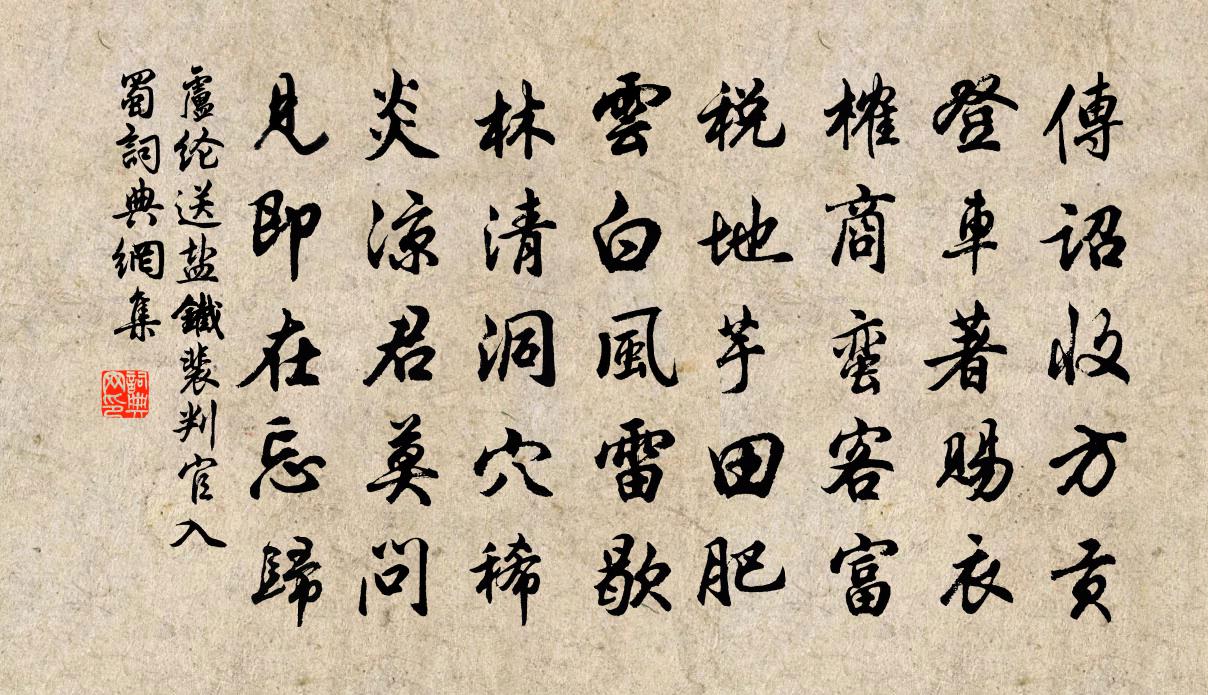 傳詔收方貢
登車著賜衣
榷商蠻客富
税地芋田肥
雲白風雷歇
林清洞穴稀
炎凉君莫問
見即在忘歸
盧纶送盐鐵裴判官入
蜀詞典網集
詞典
网印